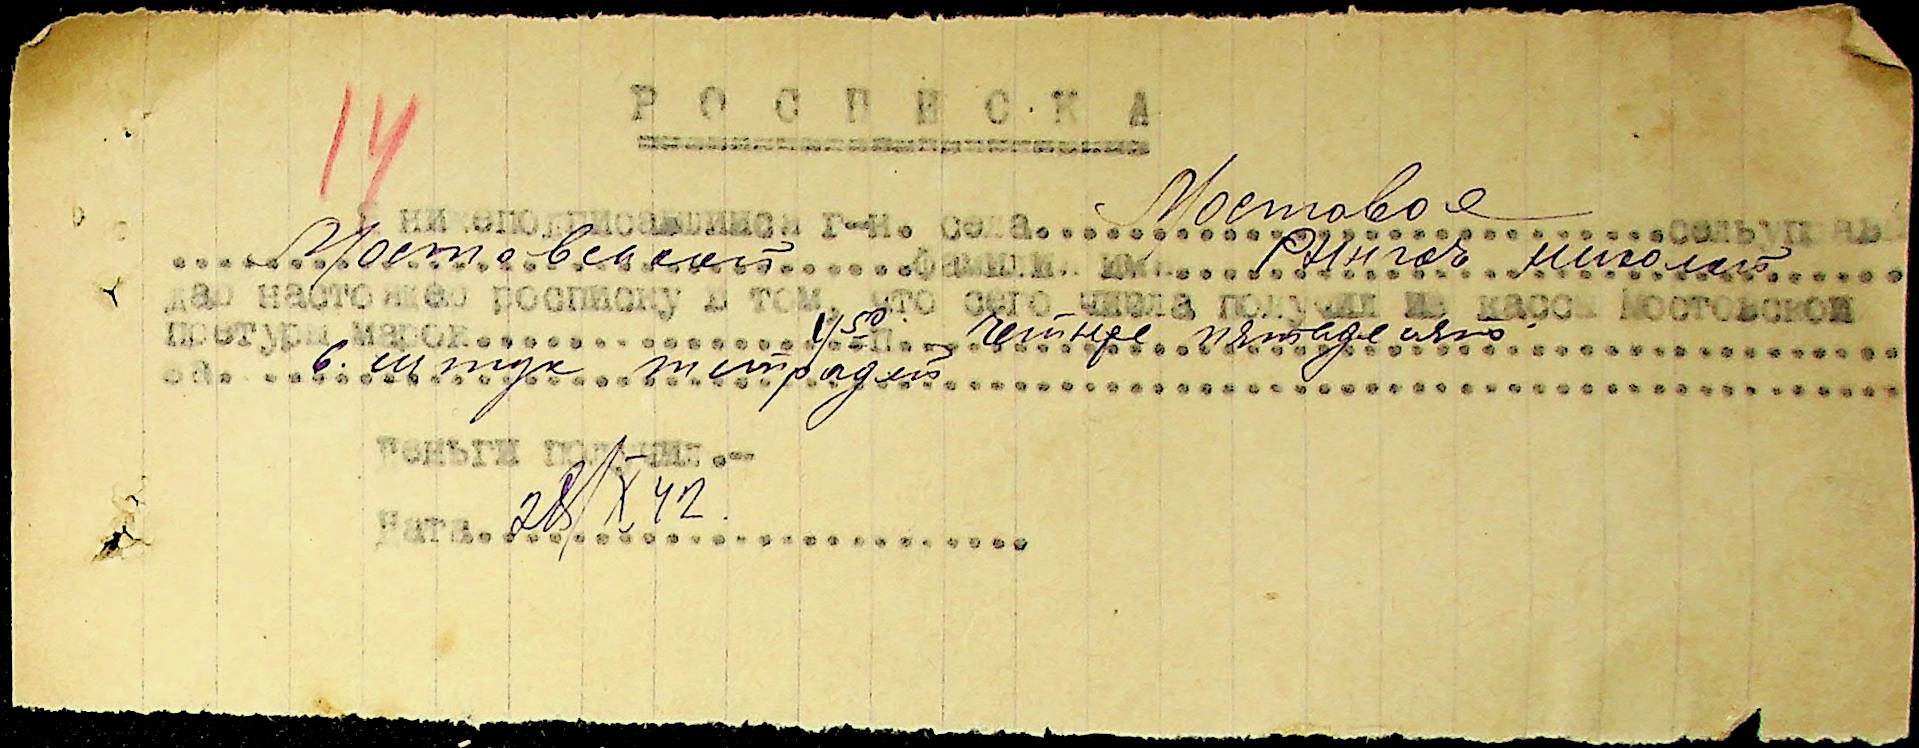 14
Р О С П И С К А
Я нижеподписавшийся г-н. села..Мостовое..сельуправ
..Мостовской..фамилия имя..Рингач николай..
даю настоящую росписку в том, что сего числа получил из кассы Мостовской
претуры марок..4/50 п.. четыре пятдесят
6. штук тетрадей
Деньги получил.-
Дата. 28/X 42.